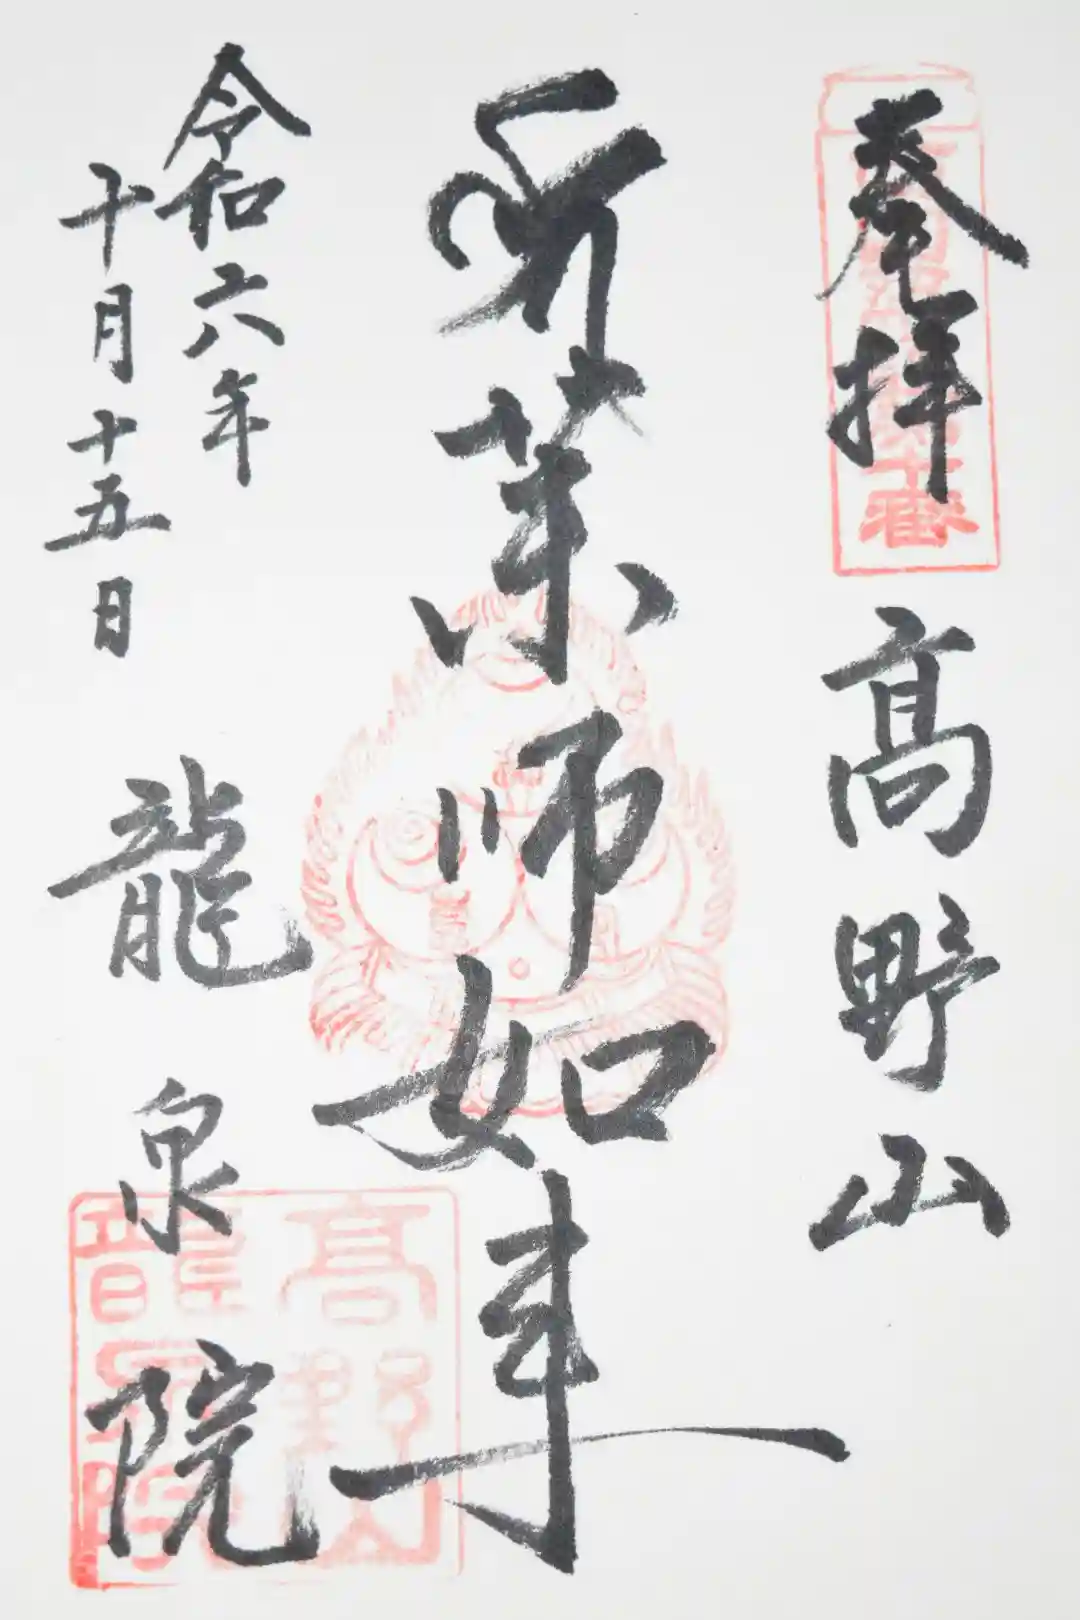 奉拝
高野山
薬師如来
令和六年
十月十五日
龍泉院
高野山
龍泉院